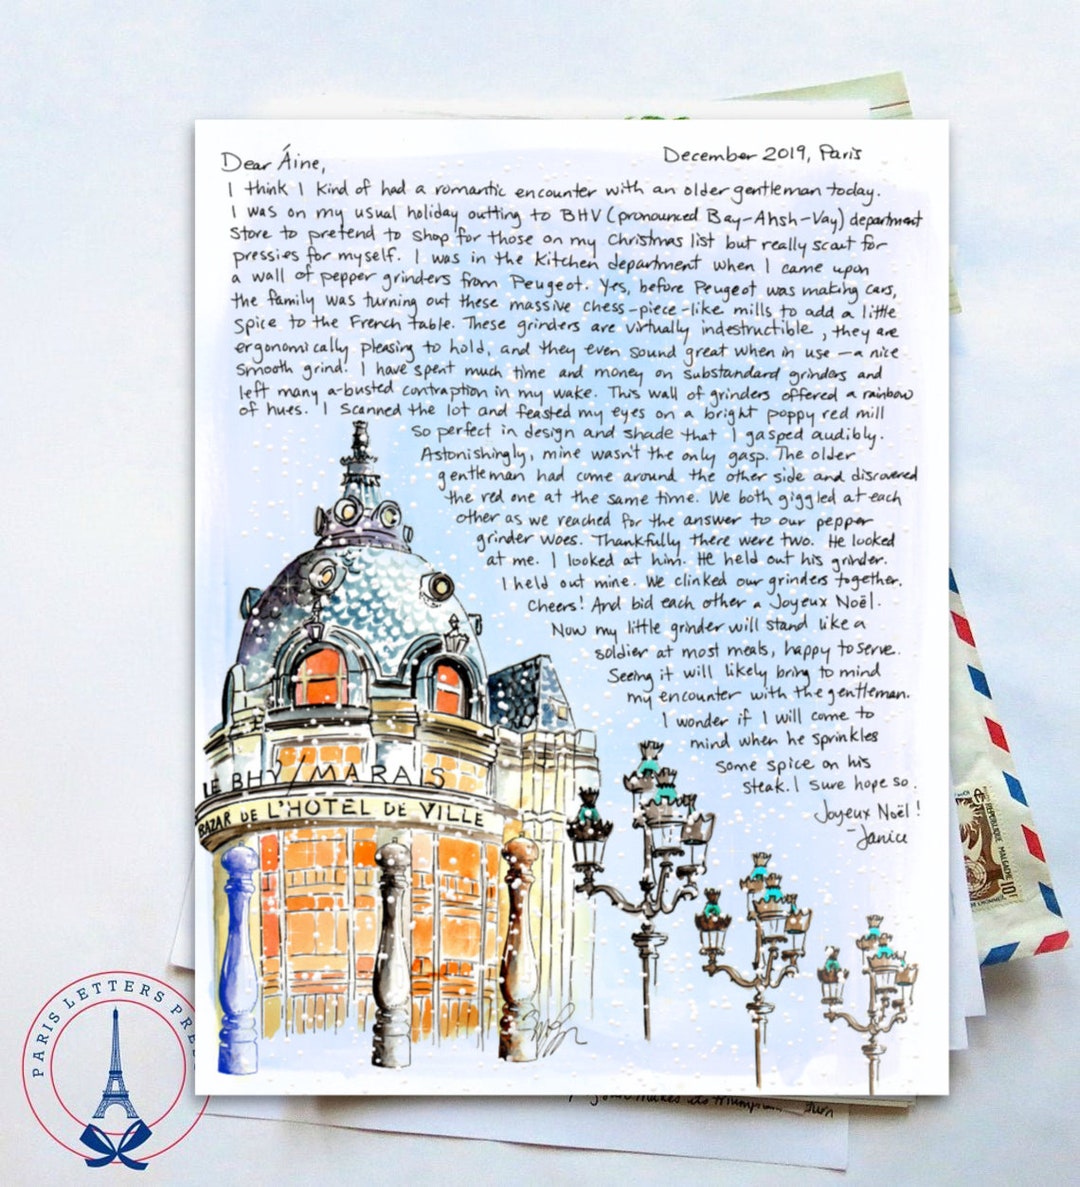 Dear Áine,
December 2019, Paris
I think I kind of had a romantic encounter with an older gentleman today.
I was on my usual holiday outting to BHV (pronounced Bay-Ahsh-Vay) department
store to pretend to shop for those on my Christmas list but really scout for
pressies for myself. I was in the kitchen department when I came upon
a wall of pepper grinders from Peugeot. Yes, before Peugeot was making cars,
the family was turning out these massive chess-piece-like mills to add a little
spice to the French table. These grinders are virtually indestructible, they are
ergonomically pleasing to hold, and they even sound great when in use - a nice
smooth grind! I have spent much time and money on substandard grinders and
left many a-busted contraption in my wake. This wall of grinders offered a rainbow
of hues. I scanned the lot and feasted my eyes on a bright poppy red mill
so perfect in design and shade that I gasped audibly.
Astonishingly, mine wasn't the only gasp. The older
gentleman had come around the other side and discovered
the red one at the same time. We both giggled at each
other as we reached for the answer to our pepper
grinder woes. Thankfully there were two. He looked
at me. I looked at him. He held out his grinder.
I held out mine. We clinked our grinders together.
Cheers! And bid each other a Joyeux Noël.
Now my little grinder will stand like a
soldier at most meals, happy to serve.
Seeing it will likely bring to mind
my encounter with the gentleman.
I wonder if I will come to
mind when he sprinkles
some spice on his
steak. I sure hope so.
Joyeux Noël!
-Janice
LE BHV/MARAIS
BAZAR DE L'HOTEL DE VILLE
PARIS LETTERS PRE
REPUBLIQUE MALGACHE
10F
makes its